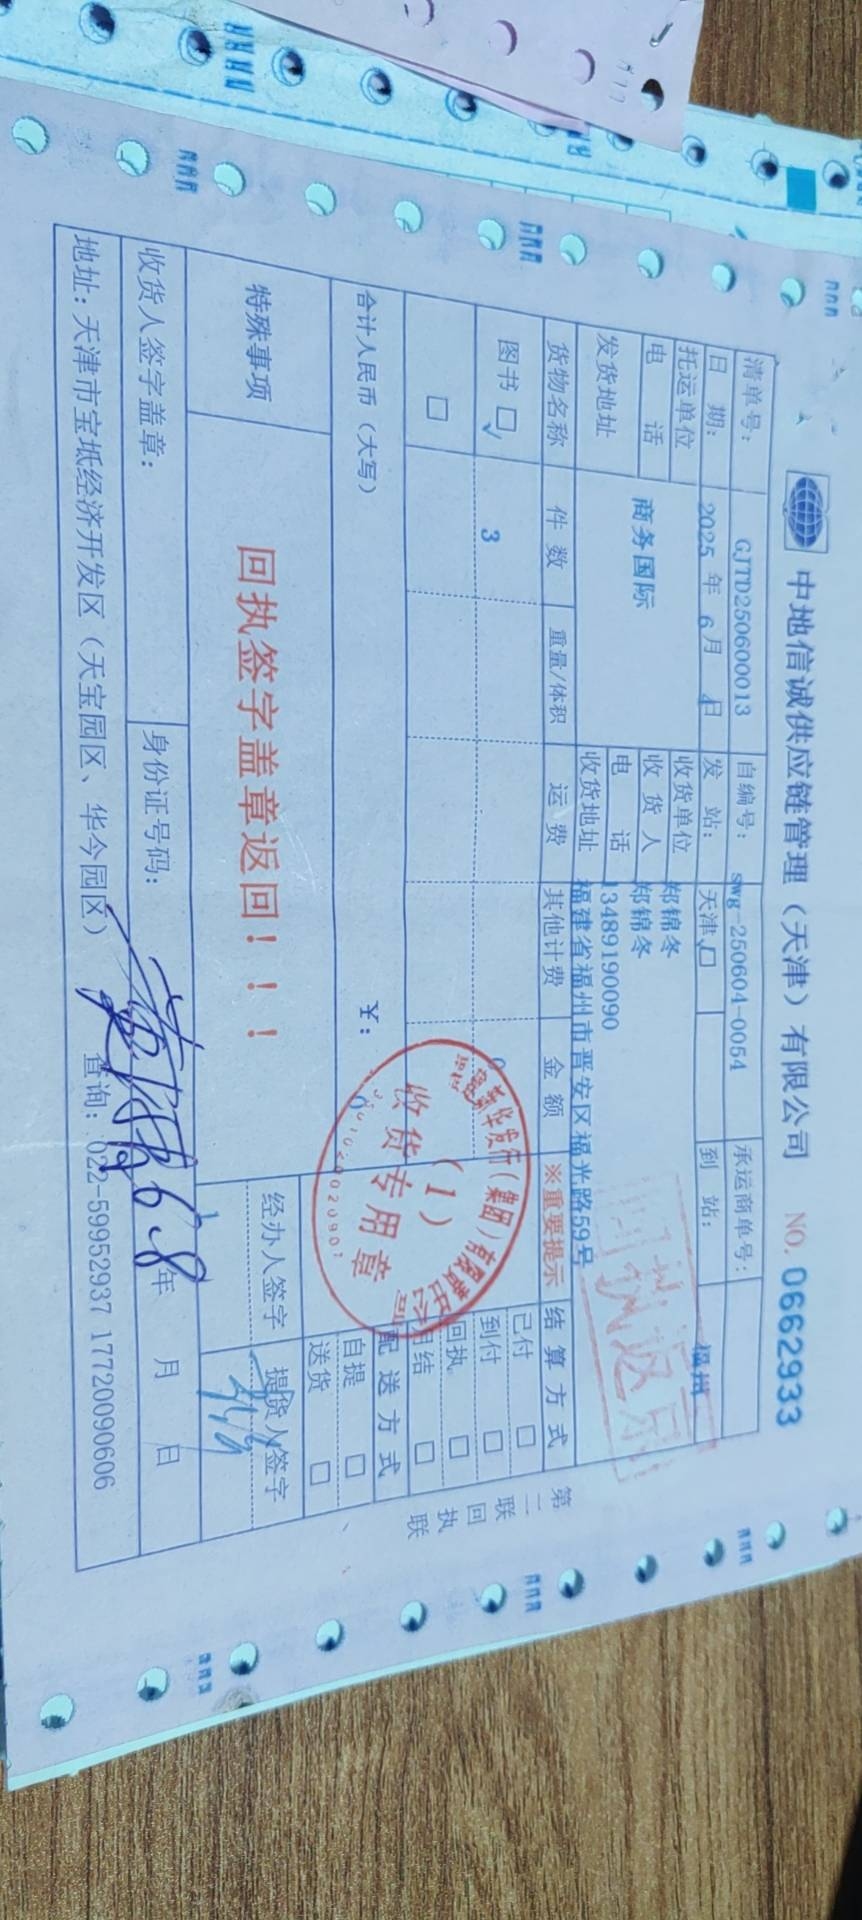 中地信诚供应链管理（天津）有限公司 NO. 0662933
清单号： GJTD250600013 自编号： swg-250604-0054 承运商单号：
日 期： 2025 年 6 月 4 日 发 站： 天津 □ 到 站： 福州
托运单位 商务国际 收货单位 郑锦冬
电 话 收 货 人 郑锦冬
电 话 13489190090
发货地址 收货地址 福建省福州市晋安区福光路59号
回执返회
货物名称 件 数 重量/体积 运 费 其他计费 金 额 ※重要提示 结 算 方 式
图书 □ √ 3 0
□
已付 □
到付 □
回执 □
月结 □
配 送 方 式
自提 □
送货 □
合计人民币（大写） ￥： 0
特殊事项 回执签字盖章返回！！！ 经办人签字 提货人签字
收货人签字盖章： 身份证号码： 6.8 年 月 日
地址：天津市宝坻经济开发区（天宝园区、华今园区） 查询：022-59952937 17720090606
第二联 回执联
新华发行（集团）有限责任公司
（1）
收货专用章